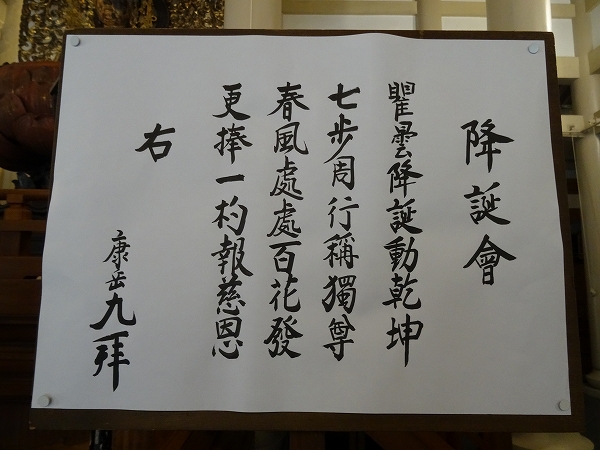 降誕會
瞿曇降誕動乾坤
七歩周行稱獨尊
春風處處百花發
更捧一杓報慈恩
右
康岳九拜